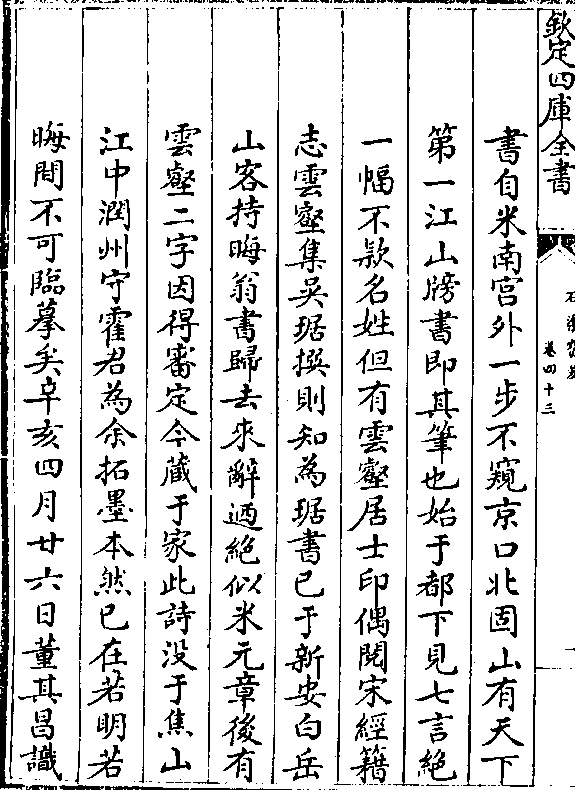 欽定四庫全書
卷四十三
書自米南宫外一步不窺京口北固山有天下
第一江山牓書即其筆也始于都下見七言絶
一幅不欵名姓但有雲壑居士印偶閱宋經籍
志雲壑集吴琚撰則知為琚書已于新安白岳
山客持晦翁書歸去來辭迺絶似米元章後有
雲壑二字因得審定今蔵于家此詩没于焦山
江中潤州守霍君為余拓墨本然已在若明若
晦間不可臨摹矣辛亥四月廿六日董其昌識